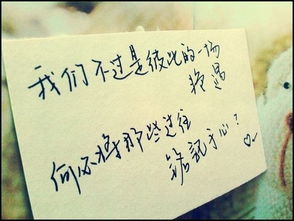 我们不过是彼此的一场
路过
何必将那些过往
铭记于心?